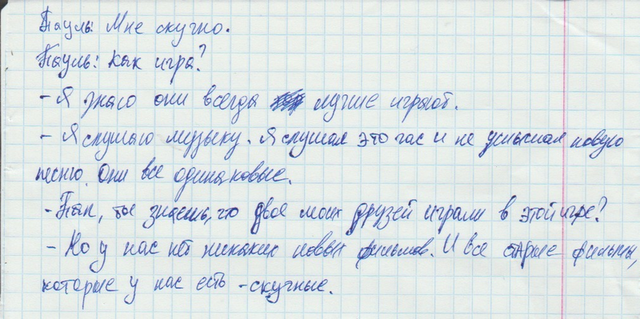 Пауль: Мне скучно.
Пауль: Как игра?
- Я знаю они всегда лучше играют.
- Я слушаю музыку. Я слушал это час и не услышал новую
песню. Они все одинаковые.
- Пап, ты знаешь, что двое моих друзей играли в этой игре?
- Но у нас нет никаких новых фильмов. И все старые фильмы,
которые у нас есть - скучные.